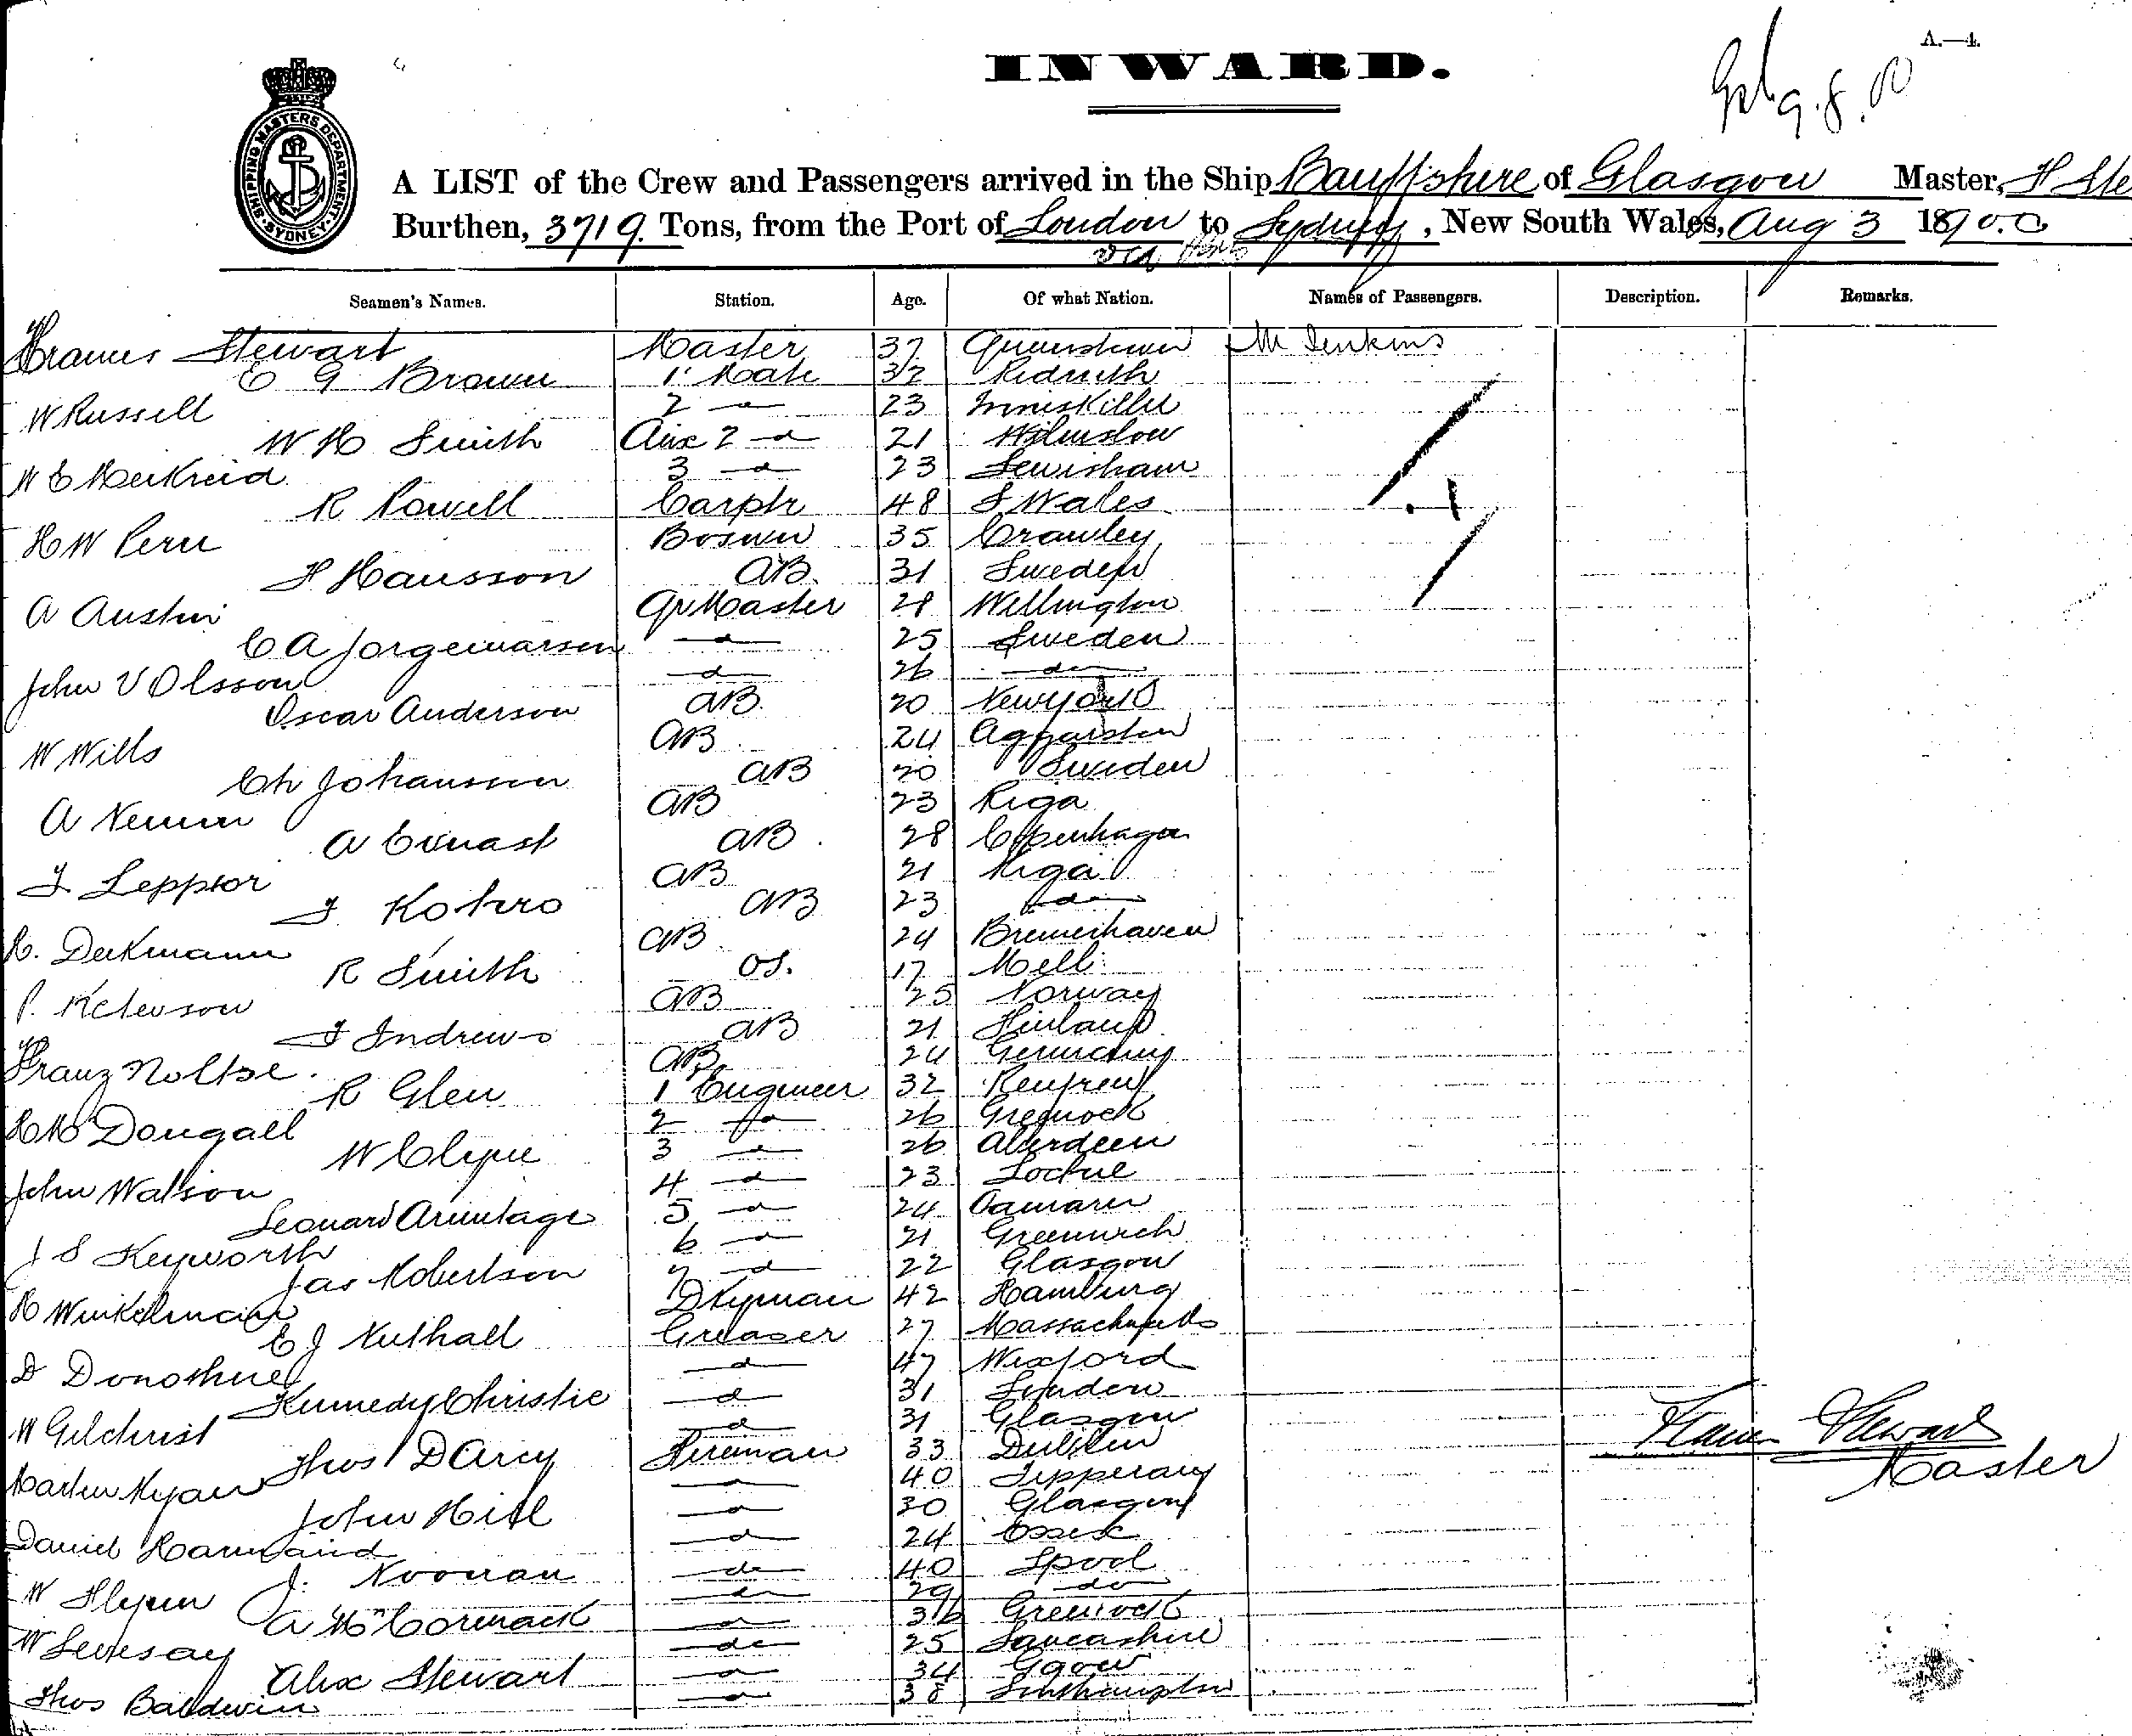 A.—4.
INWARD.
SHIPPING MASTERS DEPARTMENT. SYDNEY
A LIST of the Crew and Passengers arrived in the Ship Banffshire of Glasgow Master, F Ste
Burthen, 3719. Tons, from the Port of London to Sydney, New South Wales, Aug 3 1890.0
via
Seamen's Names. Station. Age. Of what Nation. Names of Passengers. Description. Remarks.
Francis Stewart Master 37 Queenstown M Jenkins
E G Brown 1 Mate 32 Redruth
W Russell 2 d 23 Inniskillen
W H Smith Aux 2 d 21 Wilmslow
W E 3 d 23 Lewisham
R Powell Carptr 48 S Wales
H W Bosun 35 Crawley
F Hansson AB. 31 Sweden
A Austin Qr Master 28 Wellington
C A d 25 Sweden
John V Olsson d 26 do
Oscar Anderson AB. 20 New York
W Wills AB 24
Ch Johansson AB 20 Sweden
A AB 23 Riga
A AB. 28 Copenhagen
J. AB 21 Riga
J. AB 23 do
H. Dekmann AB 24 Bremerhaven
R Smith OS. 17 Melb
P. Peterson AB 25 Norway
J Andrews AB 21 Finland
Franz Noltse. AB 24 Germany
R Glen 1 Engineer 32 Renfrew
H Mc Dougall 2 do 26 Greenock
W Clyne 3 d 26 Aberdeen
John Watson 4 d 23
Leonard Armitage 5 d 24 Oamaru
J S Keyworth 6 d 21 Greenwich
Jas Robertson 7 d 22 Glasgow
H Winkelmann Dkyman 42 Hamburg
E J Nuthall Greaser 27 Massachusetts
D Donoghue d 47 Wexford
Kennedy Christie d 31 London
W Gilchrist d 31 Glasgow
Thos D'Arcy Fireman 33 Dublin
Martin Ryan d 40 Tipperary
John Hill d 30 Glasgow
Daniel d 24 Essex
J. Noonan do 40 Lpool
W Flynn do 29 do
A McCormack d 36 Greenock
W Livesay do 25 Lancashire
Alex Stewart d 34
Thos Baldwin d 38 Southampton
Francis Stewart
Master